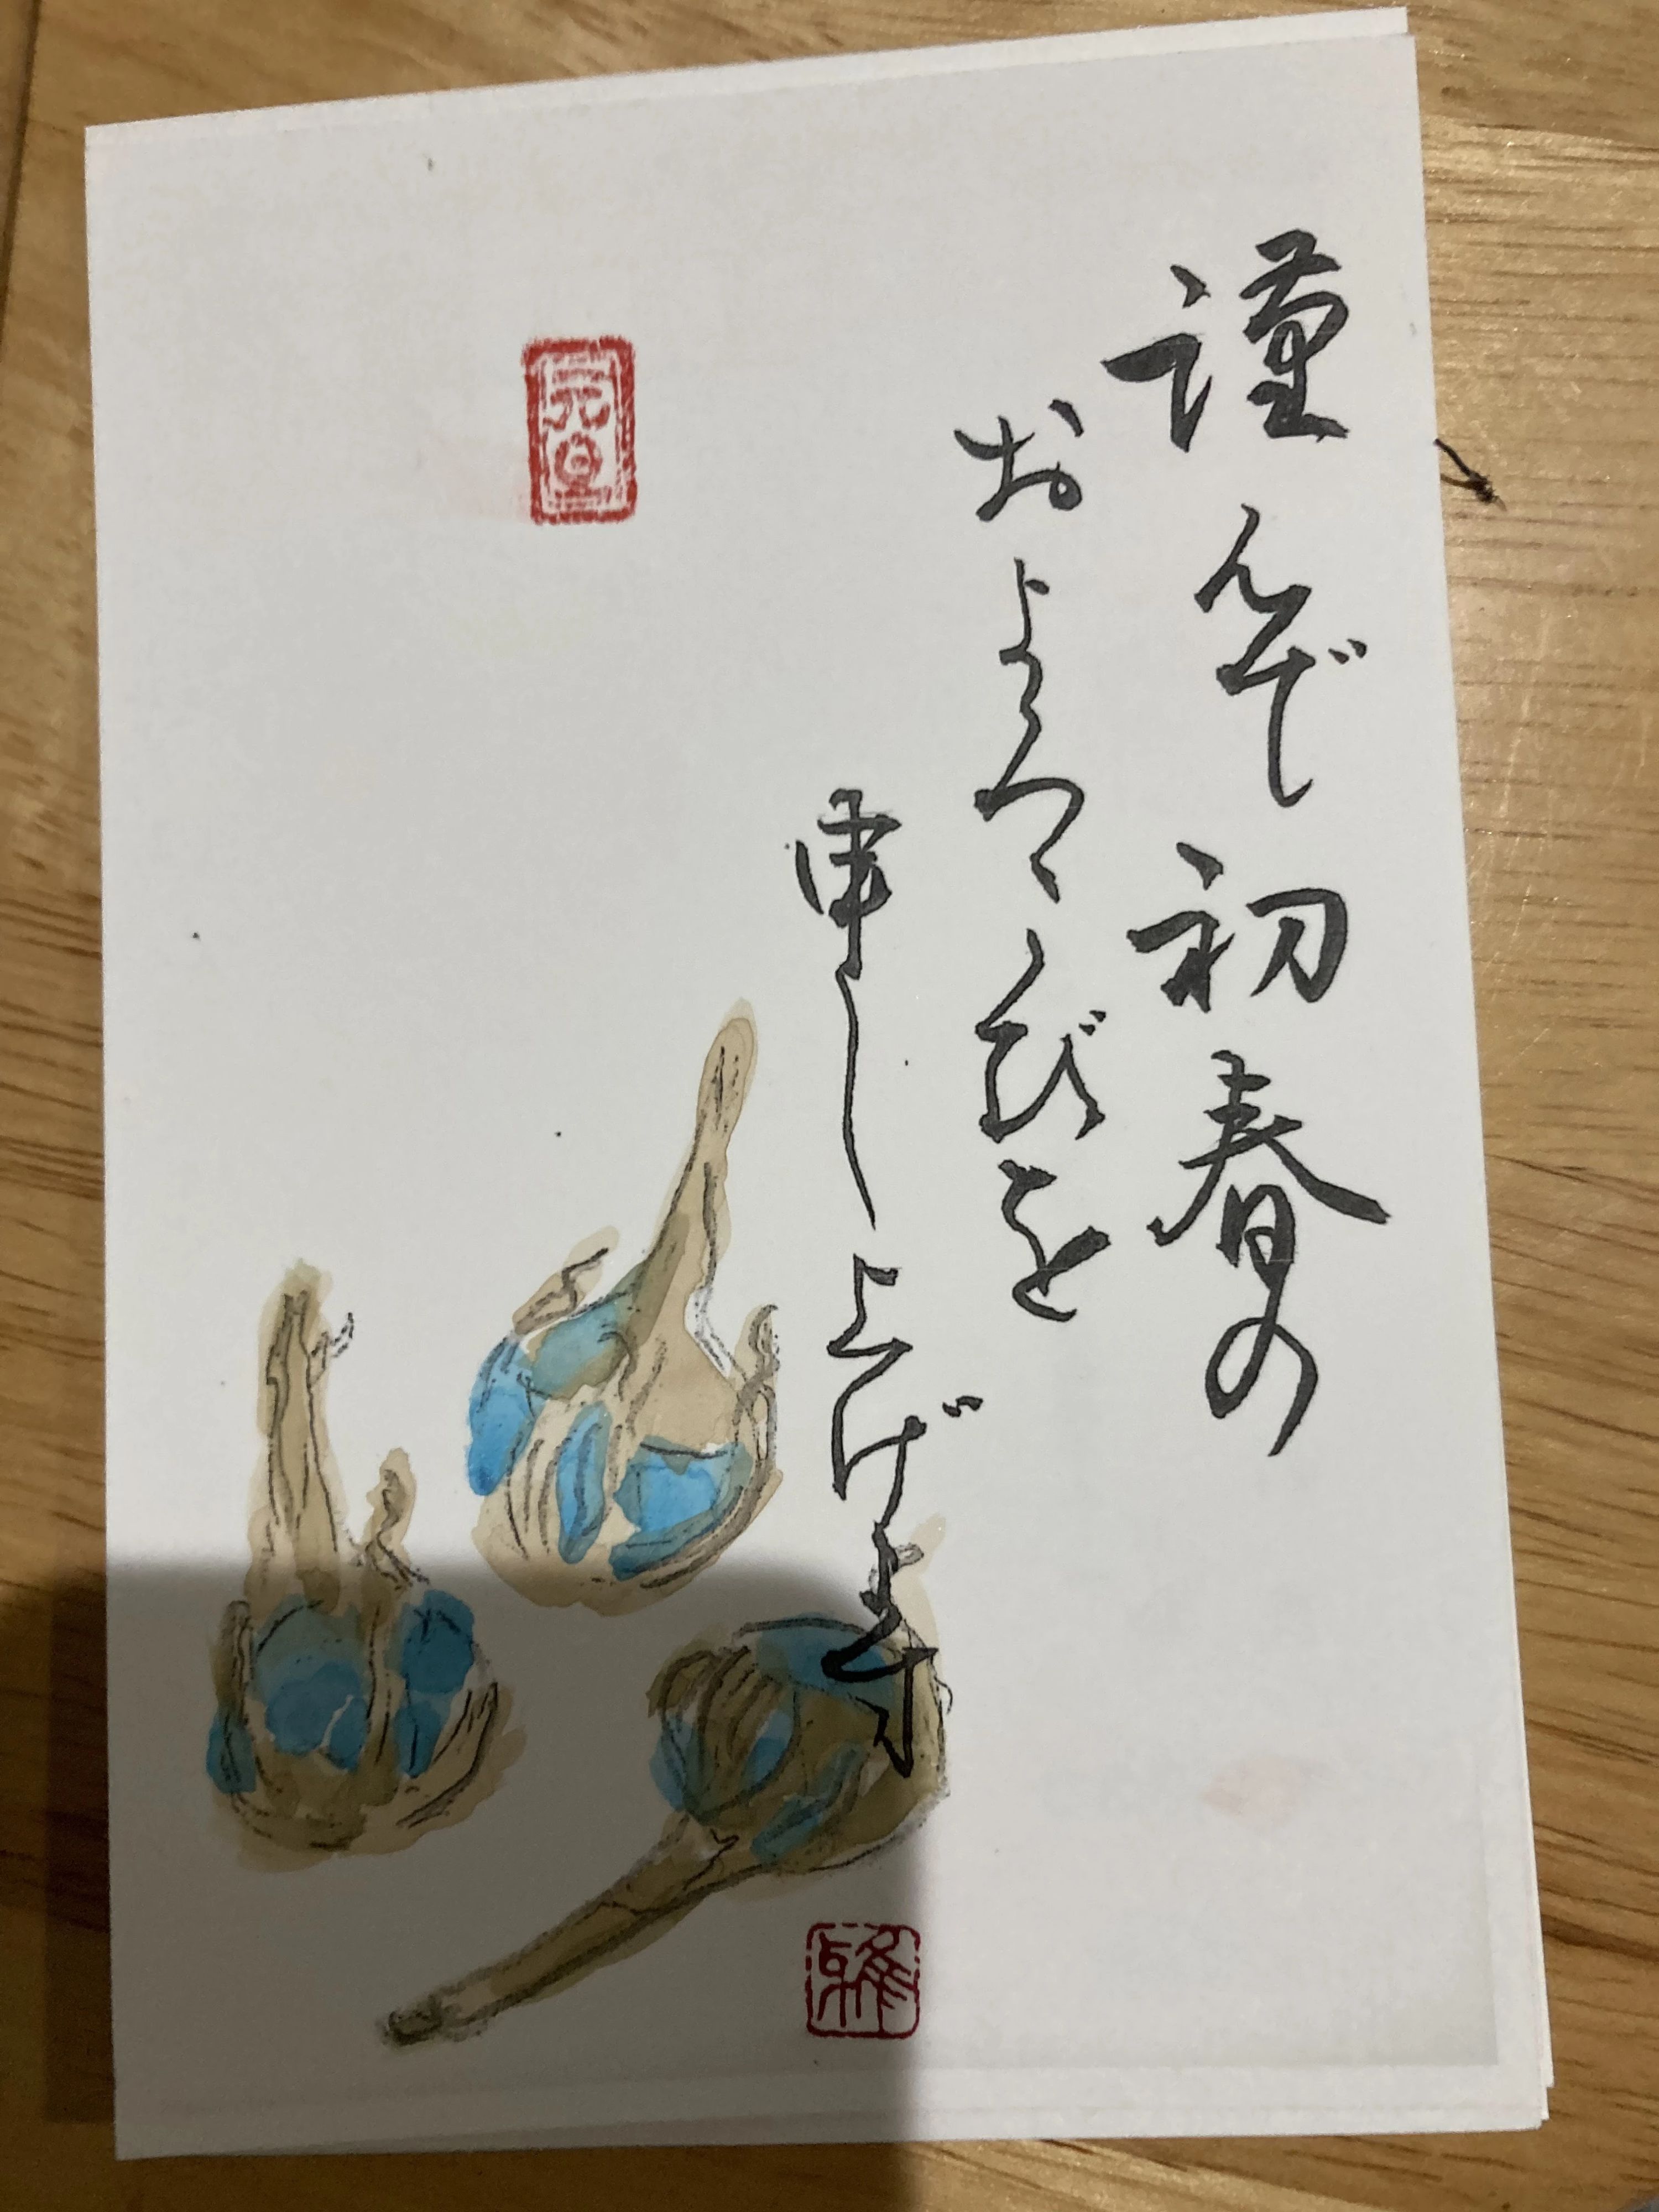 謹んで初春の
およろこびを
申し上げます
元旦